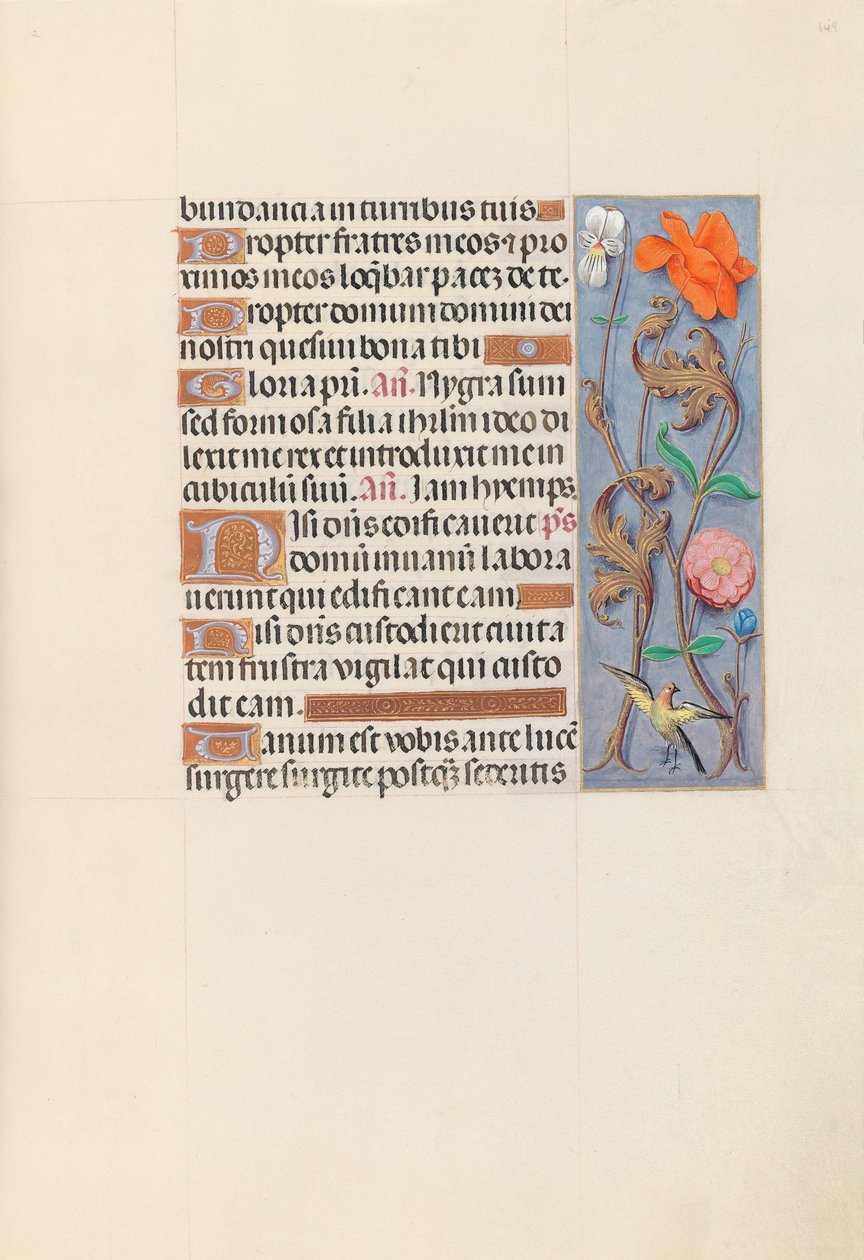 149
bundancia in turribus tuis
Propter fratres meos ⁊ pro
ximos meos loq̄bar pacez de te.
Propter domum domini dei
nostri quesiui bona tibi
Gloria pr̄i. Añ. Nygra sum
sed formosa filia ihrl̄m ideo di
lexit me rex et introduxit me in
cubiculū suū. Añ. Iam hyemps.
Nisi dn̄s edificauerit p̄s
domū in uanū labora
uerunt qui edificant eam
Nisi dn̄s custodierit ciuita
tem frustra vigilat qui custo
dit eam.
Uanum est vobis ante lucē
surgere surgite postq̄z sederitis